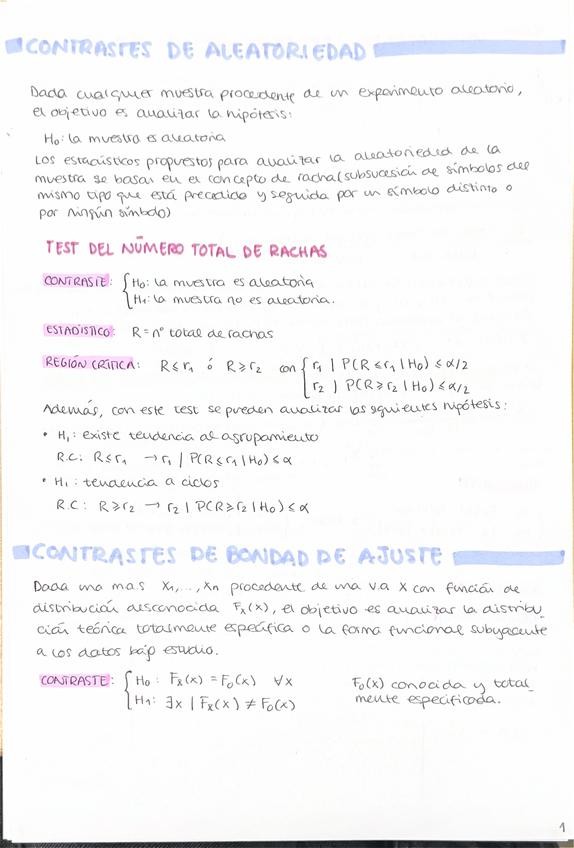 CONTRASTES DE ALEATORIEDAD
Dada cualquier muestra procedente de un experimento aleatorio,
el objetivo es analizar la hipótesis:
H₀: la muestra es aleatoria
Los estadísticos propuestos para analizar la aleatoriedad de la
muestra se basan en el concepto de racha (subsucesión de símbolos del
mismo tipo que está precedido y seguida por un símbolo distinto o
por ningún símbolo)
TEST DEL NÚMERO TOTAL DE RACHAS
CONTRASTE: { H₀: la muestra es aleatoria
H₁: la muestra no es aleatoria.
ESTADÍSTICO: R = nº total de rachas
REGIÓN CRÍTICA: R ≤ r₁ ó R ≥ r₂ con { r₁ | P(R ≤ r₁ | H₀) ≤ α/2
r₂ | P(R ≥ r₂ | H₀) ≤ α/2
Además, con este test se pueden analizar las siguientes hipótesis:
• H₁: existe tendencia al agrupamiento
R.C: R ≤ r₁ → r₁ | P(R ≤ r₁ | H₀) ≤ α
• H₁: tendencia a ciclos
R.C: R ≥ r₂ → r₂ | P(R ≥ r₂ | H₀) ≤ α
CONTRASTES DE BONDAD DE AJUSTE
Dada una m.a.s X₁,..., Xn procedente de una v.a X con función de
distribución desconocida Fₓ(x), el objetivo es analizar la distribu_
ción teórica totalmente específica o la forma funcional subyacente
a los datos bajo estudio.
CONTRASTE: { H₀: Fₓ(x) = F₀(x) ∀x F₀(x) conocida y total_
H₁: ∃x | Fₓ(x) ≠ F₀(x) mente especificada.
1